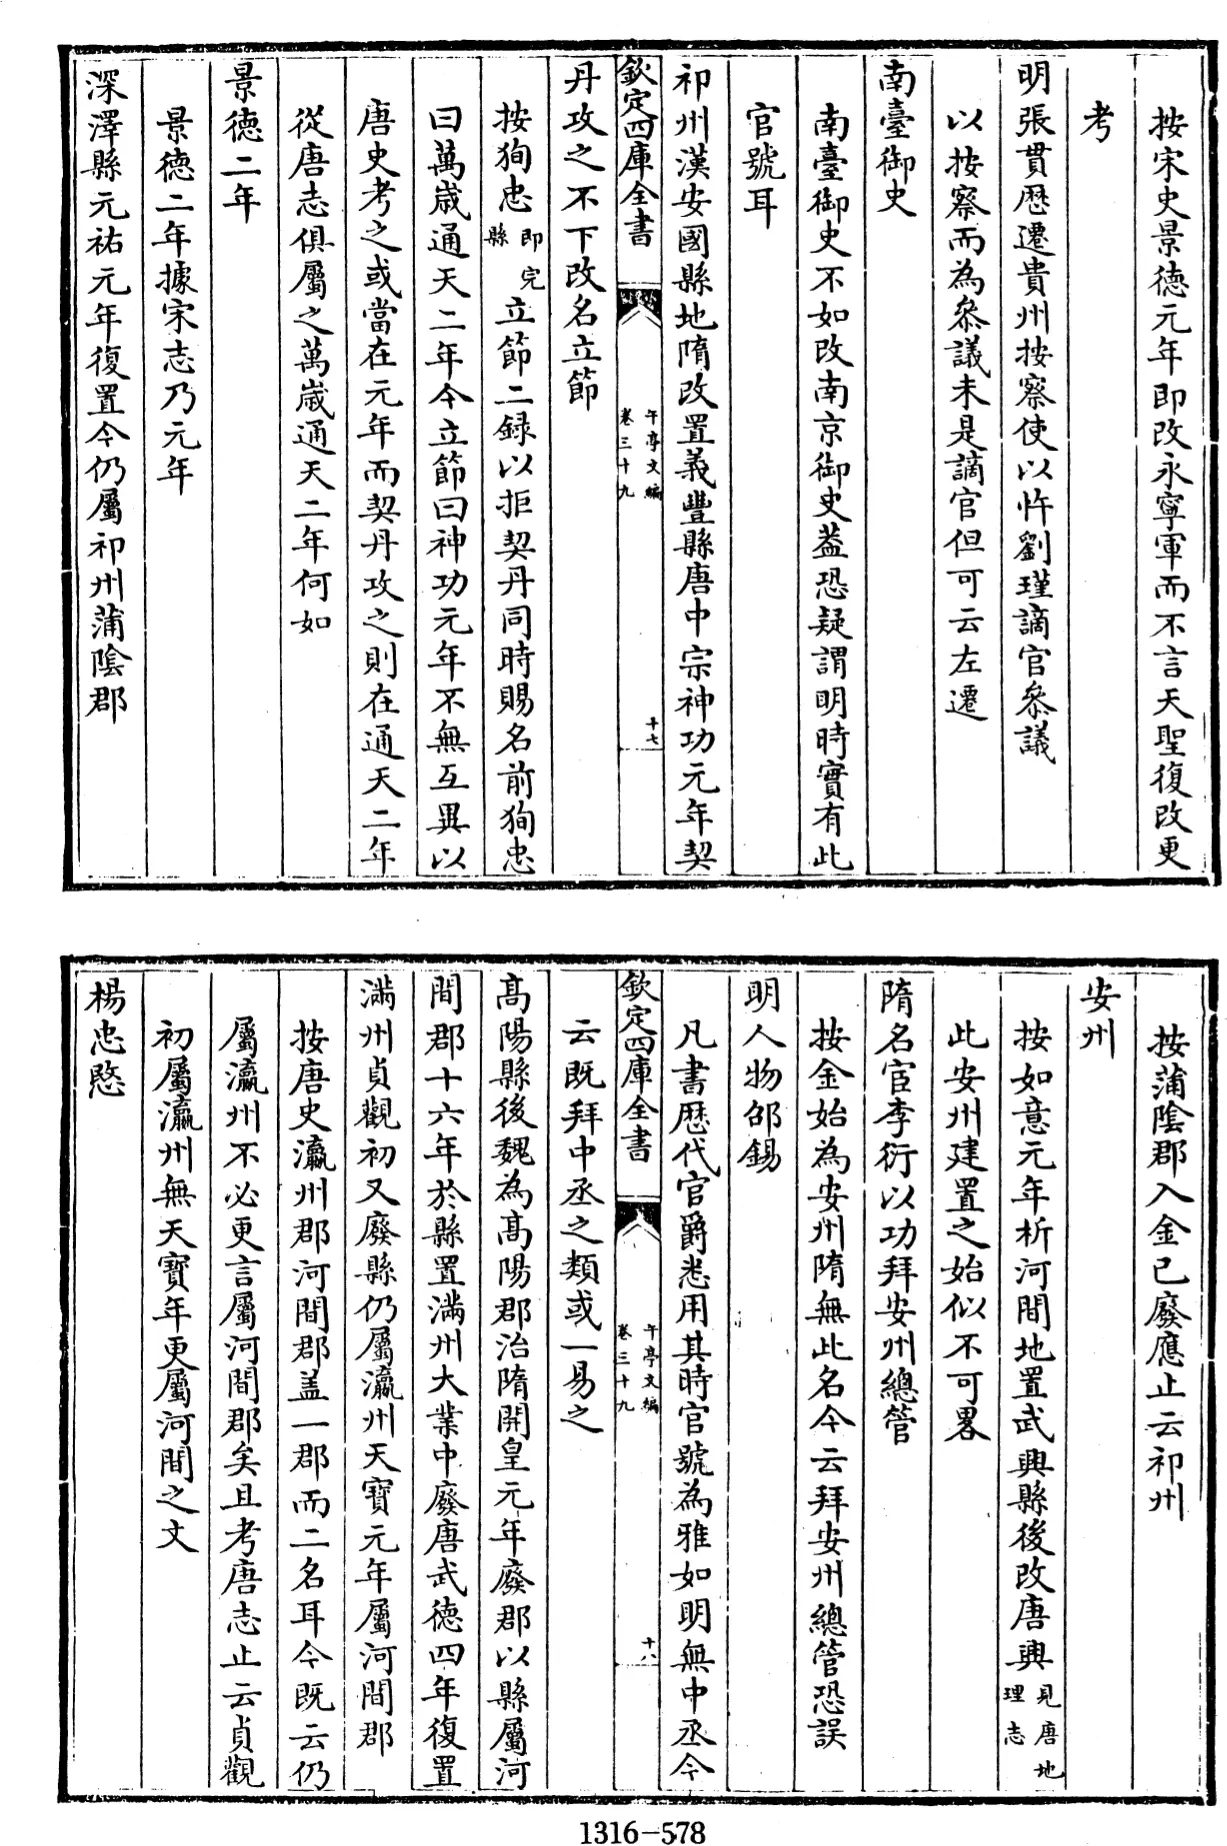 按宋史景德元年即改永寧軍而不言天聖復改更
考
明張貫歴遷貴州按察使以忤劉瑾謫官叅議
以按察而為叅議未是謫官但可云左遷
南臺御史
南臺御史不如改南京御史葢恐疑謂明時實有此
官號耳
祁州漢安國縣地隋改置義豐縣唐中宗神功元年契
欽定四庫全書
午亭文編
卷三十九
十七
丹攻之不下改名立節
按狥忠即完縣立節二録以拒契丹同時賜名前狥忠
曰萬歳通天二年今立節曰神功元年不無互異以
唐史考之或當在元年而契丹攻之則在通天二年
從唐志俱屬之萬歳通天二年何如
景德二年
景德二年據宋志乃元年
深澤縣元祐元年復置今仍屬祁州蒲陰郡
按蒲陰郡入金已廢應止云祁州
安州
按如意元年析河間地置武興縣後改唐興見唐地理志
此安州建置之始似不可畧
隋名宦李衍以功拜安州總管
按金始為安州隋無此名今云拜安州總管恐誤
明人物邵錫
凡書歴代官爵悉用其時官號為雅如明無中丞今
欽定四庫全書
午亭文編
卷三十九
十八
云既拜中丞之類或一易之
髙陽縣後魏為髙陽郡治隋開皇元年廢郡以縣屬河
間郡十六年於縣置滿州大業中廢唐武德四年復置
滿州貞觀初又廢縣仍屬瀛州天寶元年屬河間郡
按唐史瀛州郡河間郡盖一郡而二名耳今既云仍
屬瀛州不必更言屬河間郡矣且考唐志止云貞觀
初屬瀛州無天寶年更屬河間之文
楊忠愍
1316-578